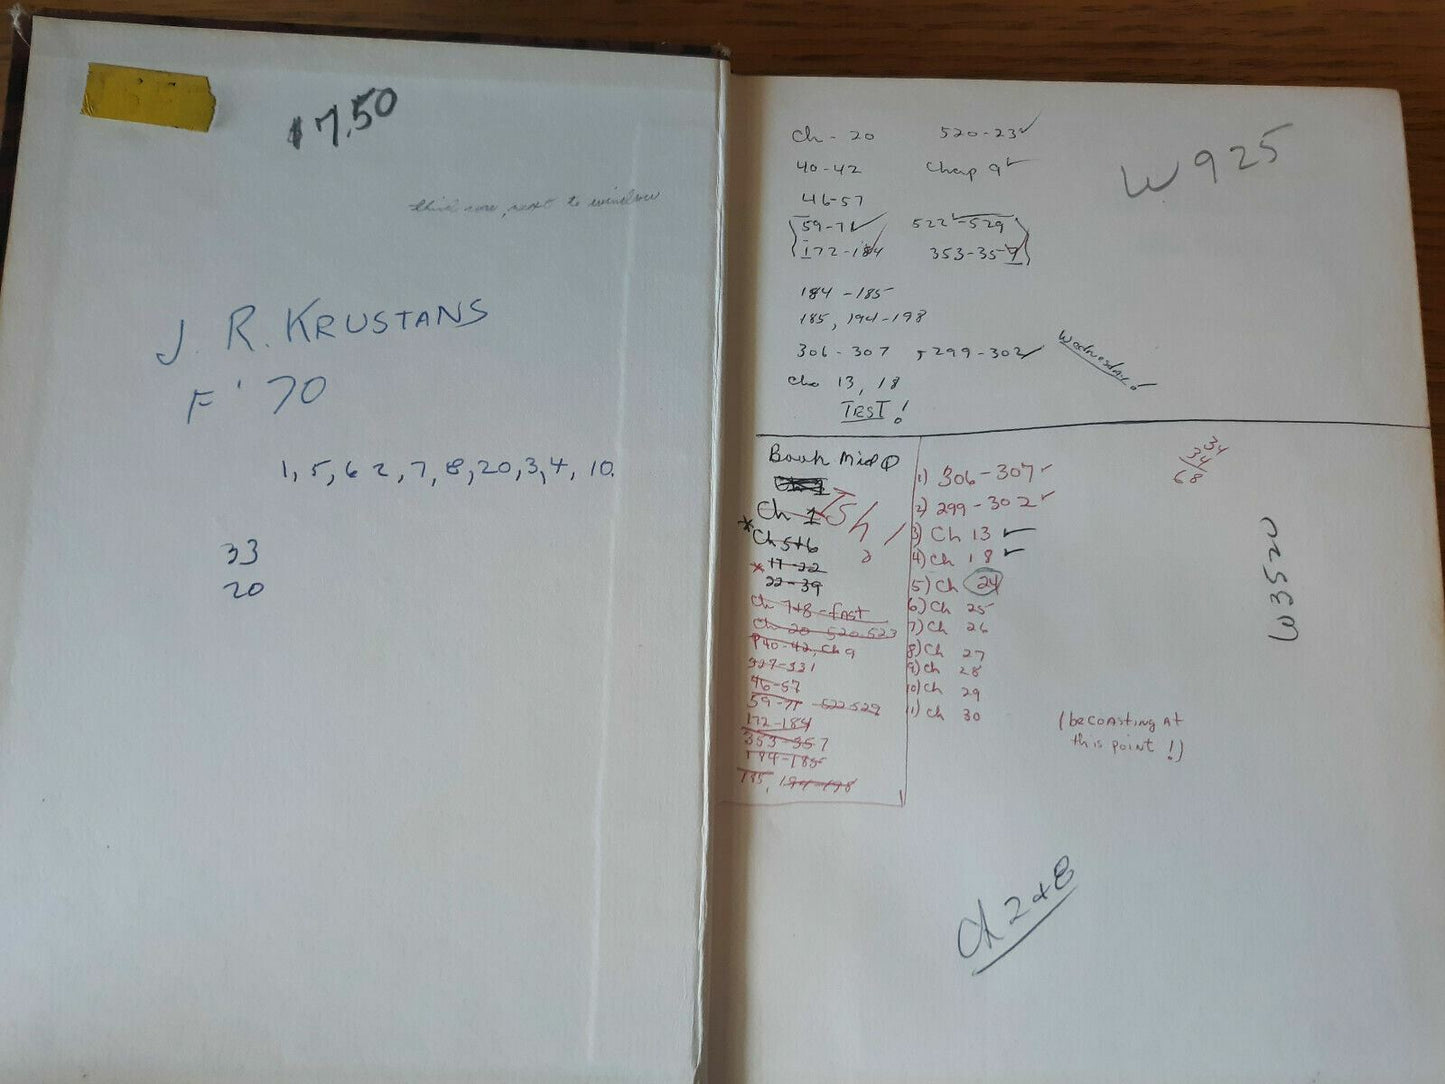 $7.50
third row, next to window
J. R. KRUSTANS
F '70
1, 5, 6 2, 7, 8, 20, 3, 4, 10.
33
20
Ch - 20 520-23
40-42 Chap 9
46-57
59-71 522-529
172-184 353-357
184-185
185, 194-198
306-307 299-302
Wednesday!
Chs 13, 18
TEST!
W925
Book Mid
Ch 1
Ch 5+6
17-22
22-39
Ch 7+8 - fast
Ch 20 520-523
P 40-42, Ch 9
327-331
46-57
59-71 522-529
172-184
353-357
184-185
185, 194-198
1) 306-307
2) 299-302
3) Ch 13
4) Ch 18
5) Ch 24
6) Ch 25
7) Ch 26
8) Ch 27
9) Ch 28
10) Ch 29
11) Ch 30
34
34
68
W352
(be coasting at
this point!)
Ch 2+8